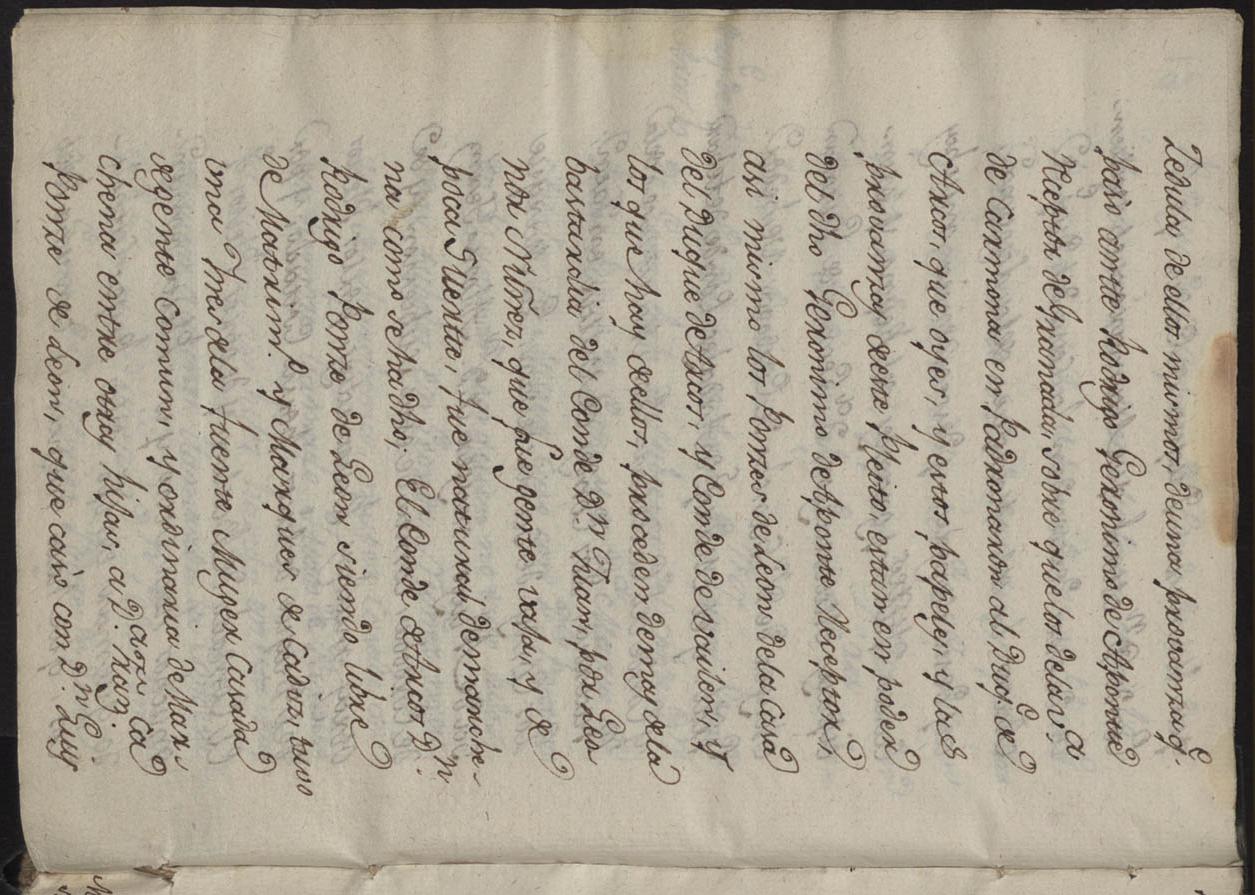 Zedula de ellos mismos, de una provanza q.e
paso ante Rodrigo Geronimo de Aponte
Receptor de Granada, sobre que los de la v.a
de Caxmona em Padronaron al Duq.e de
Arcos, que oy es, y estos papeles, y las
provanzas deste Pleito, estan en poder
del dho Geronimo de Aponte Receptor,
asi mismo los Ponzes de Leon de la Casa
del Duque de Arcos, y Conde de vailen, y
los que hay dellos, proceden demas de la
bastardia del Conde D.n Juan, por Leo
nor Nuñez, que fue gente vaja, y de
poca Suerte, fue natural de marche-
na como se ha dho; El Conde de Arcos D.n
Rodrigo Ponze de Leon siendo libre
de Matrim.o y Marques de Cadiz, tuvo
una Ines de la fuente Muger Casada
de gente Comun, y ordinaria de Mar-
chena entre otras hijas, a D.a Fran.ca
Ponze de Leon, que caso con D.n Luis